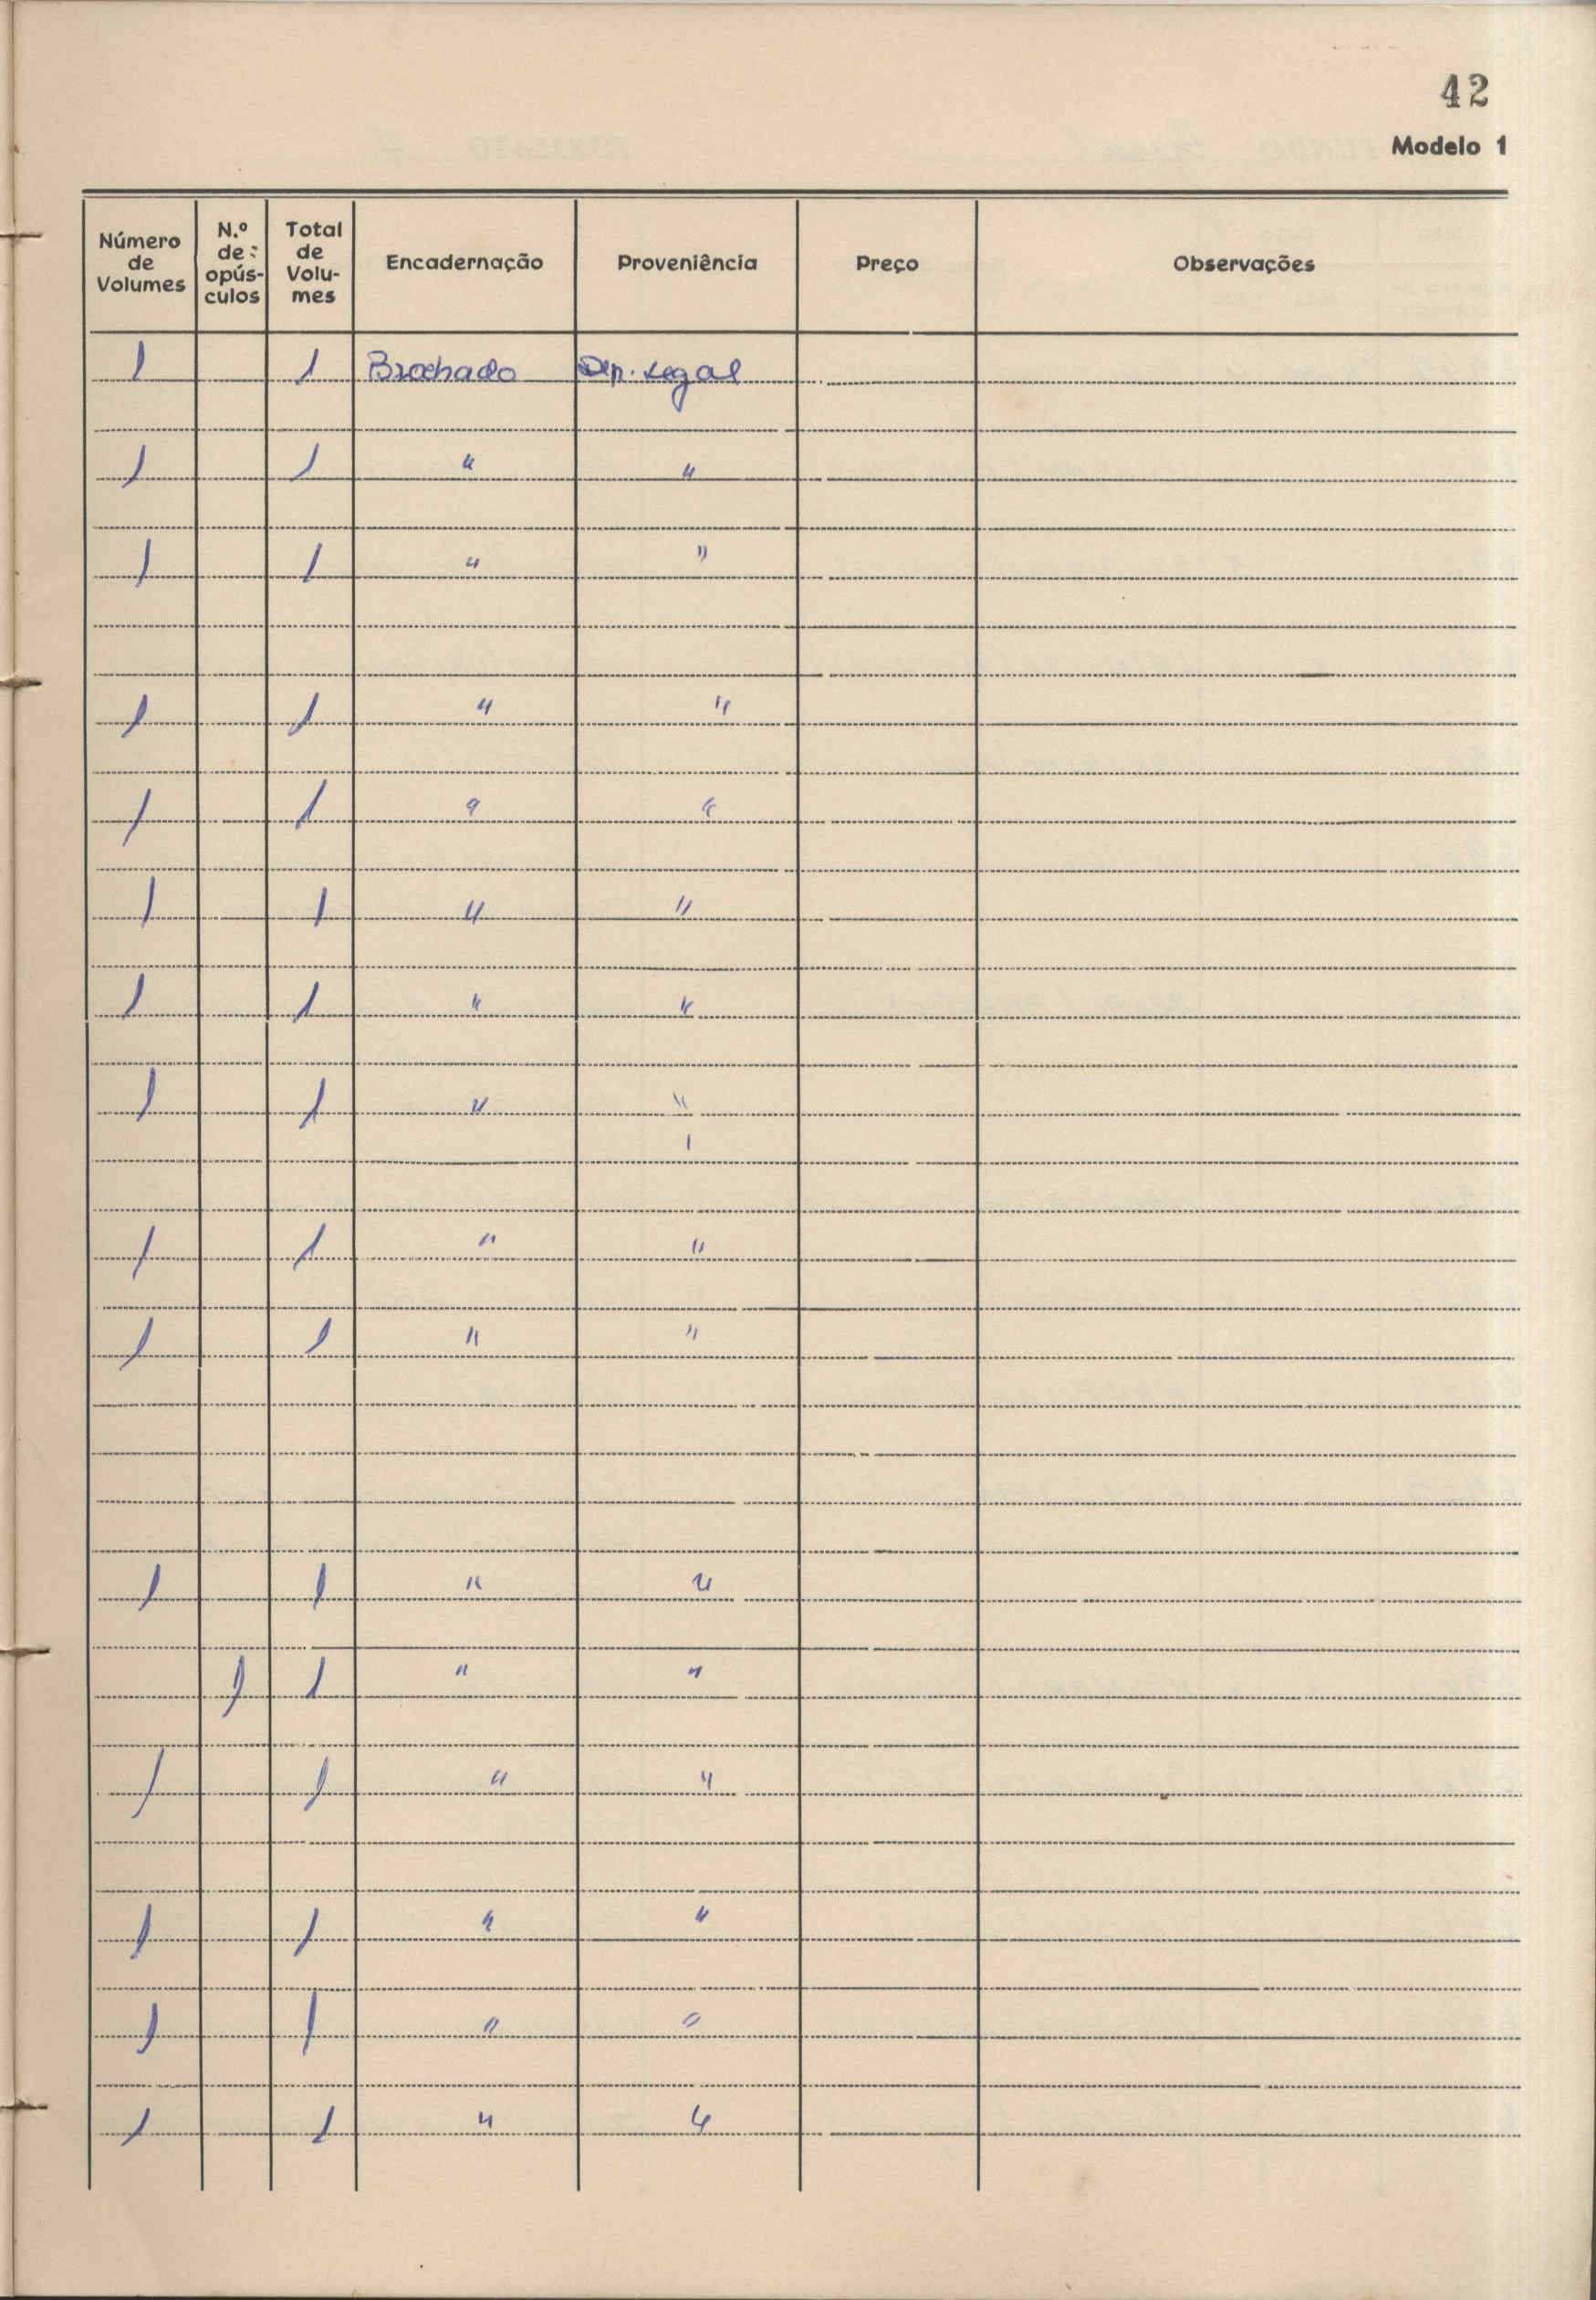 42
Modelo 1
Número de Volumes | N.º de opús-culos | Total de Volu-mes | Encadernação | Proveniência | Preço | Observações
1 | | 1 | Brochado | Dep. Legal
1 | | 1 | " | "
1 | | 1 | " | "
1 | | 1 | " | "
1 | | 1 | " | "
1 | | 1 | " | "
1 | | 1 | " | "
1 | | 1 | " | "
1 | | 1 | " | "
1 | | 1 | " | "
1 | | 1 | " | "
| 1 | 1 | " | "
1 | | 1 | " | "
1 | | 1 | " | "
1 | | 1 | " | "
1 | | 1 | " | "